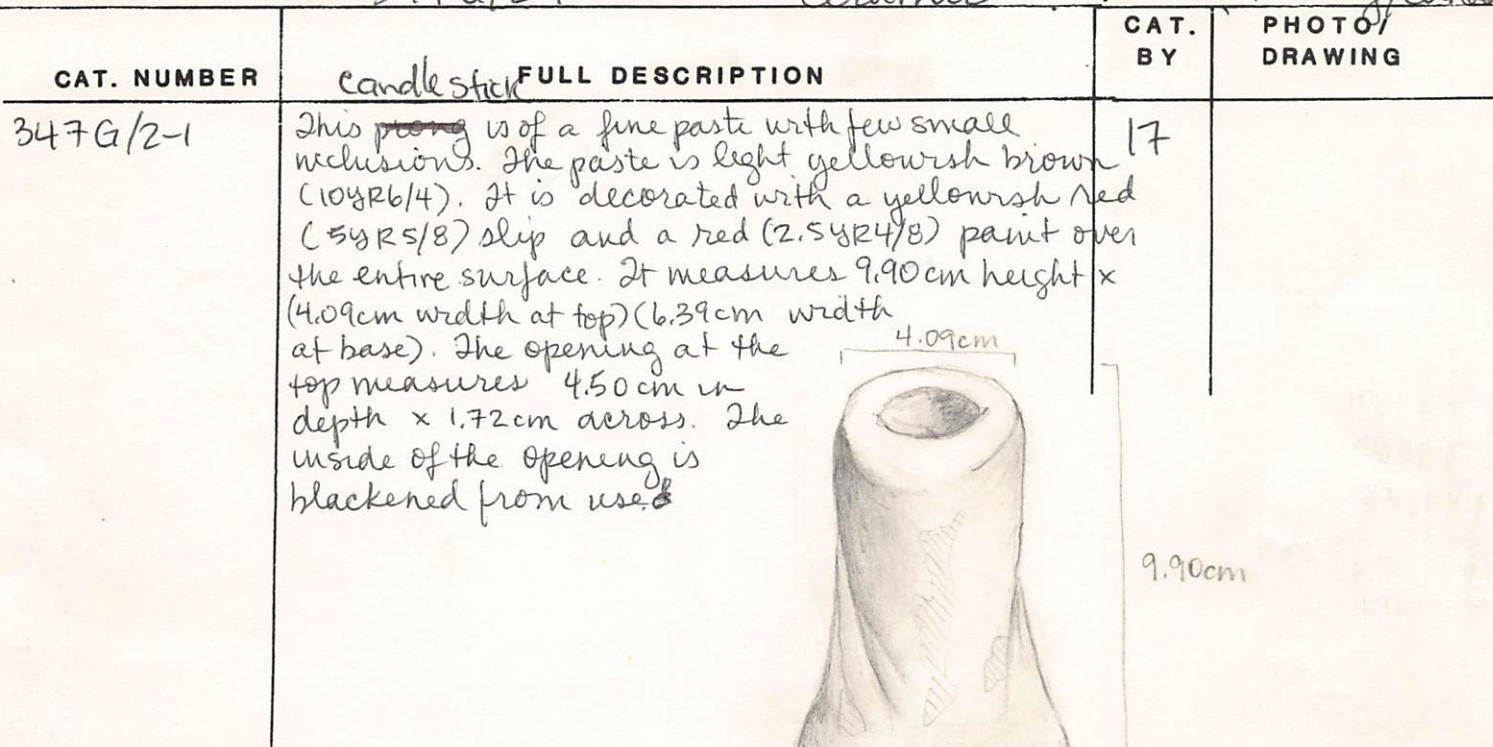 CAT. NUMBER
candlestick FULL DESCRIPTION
CAT. BY
PHOTO/ DRAWING
347G/2-1
17
This prong is of a fine paste with few small
inclusions. The paste is light yellowish brown
(10YR6/4). It is decorated with a yellowish red
(5YR5/8) slip and a red (2.5YR4/8) paint over
the entire surface. It measures 9.90cm height x
(4.09cm width at top)(6.39cm width
at base). The opening at the
top measures 4.50cm in
depth x 1.72cm across. The
inside of the opening is
blackened from use.
4.09cm
9.90cm